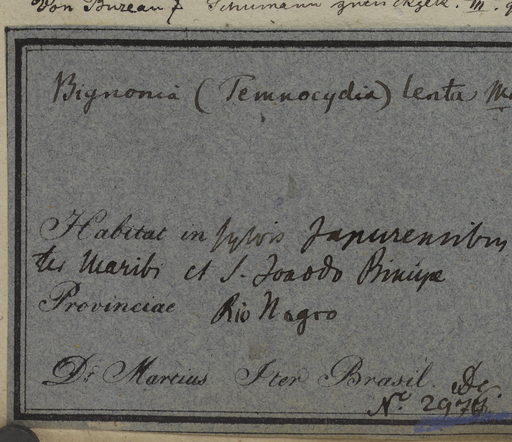 Von Bureau & Schumann III.
Bignonia (Temnocydia) lenta
Habitat in sylvis Japurensibus
Maribi et S. Joao do
Provinciae Rio Nagro
Dr. Martius Iter Brasil. Dec.
No. 2976